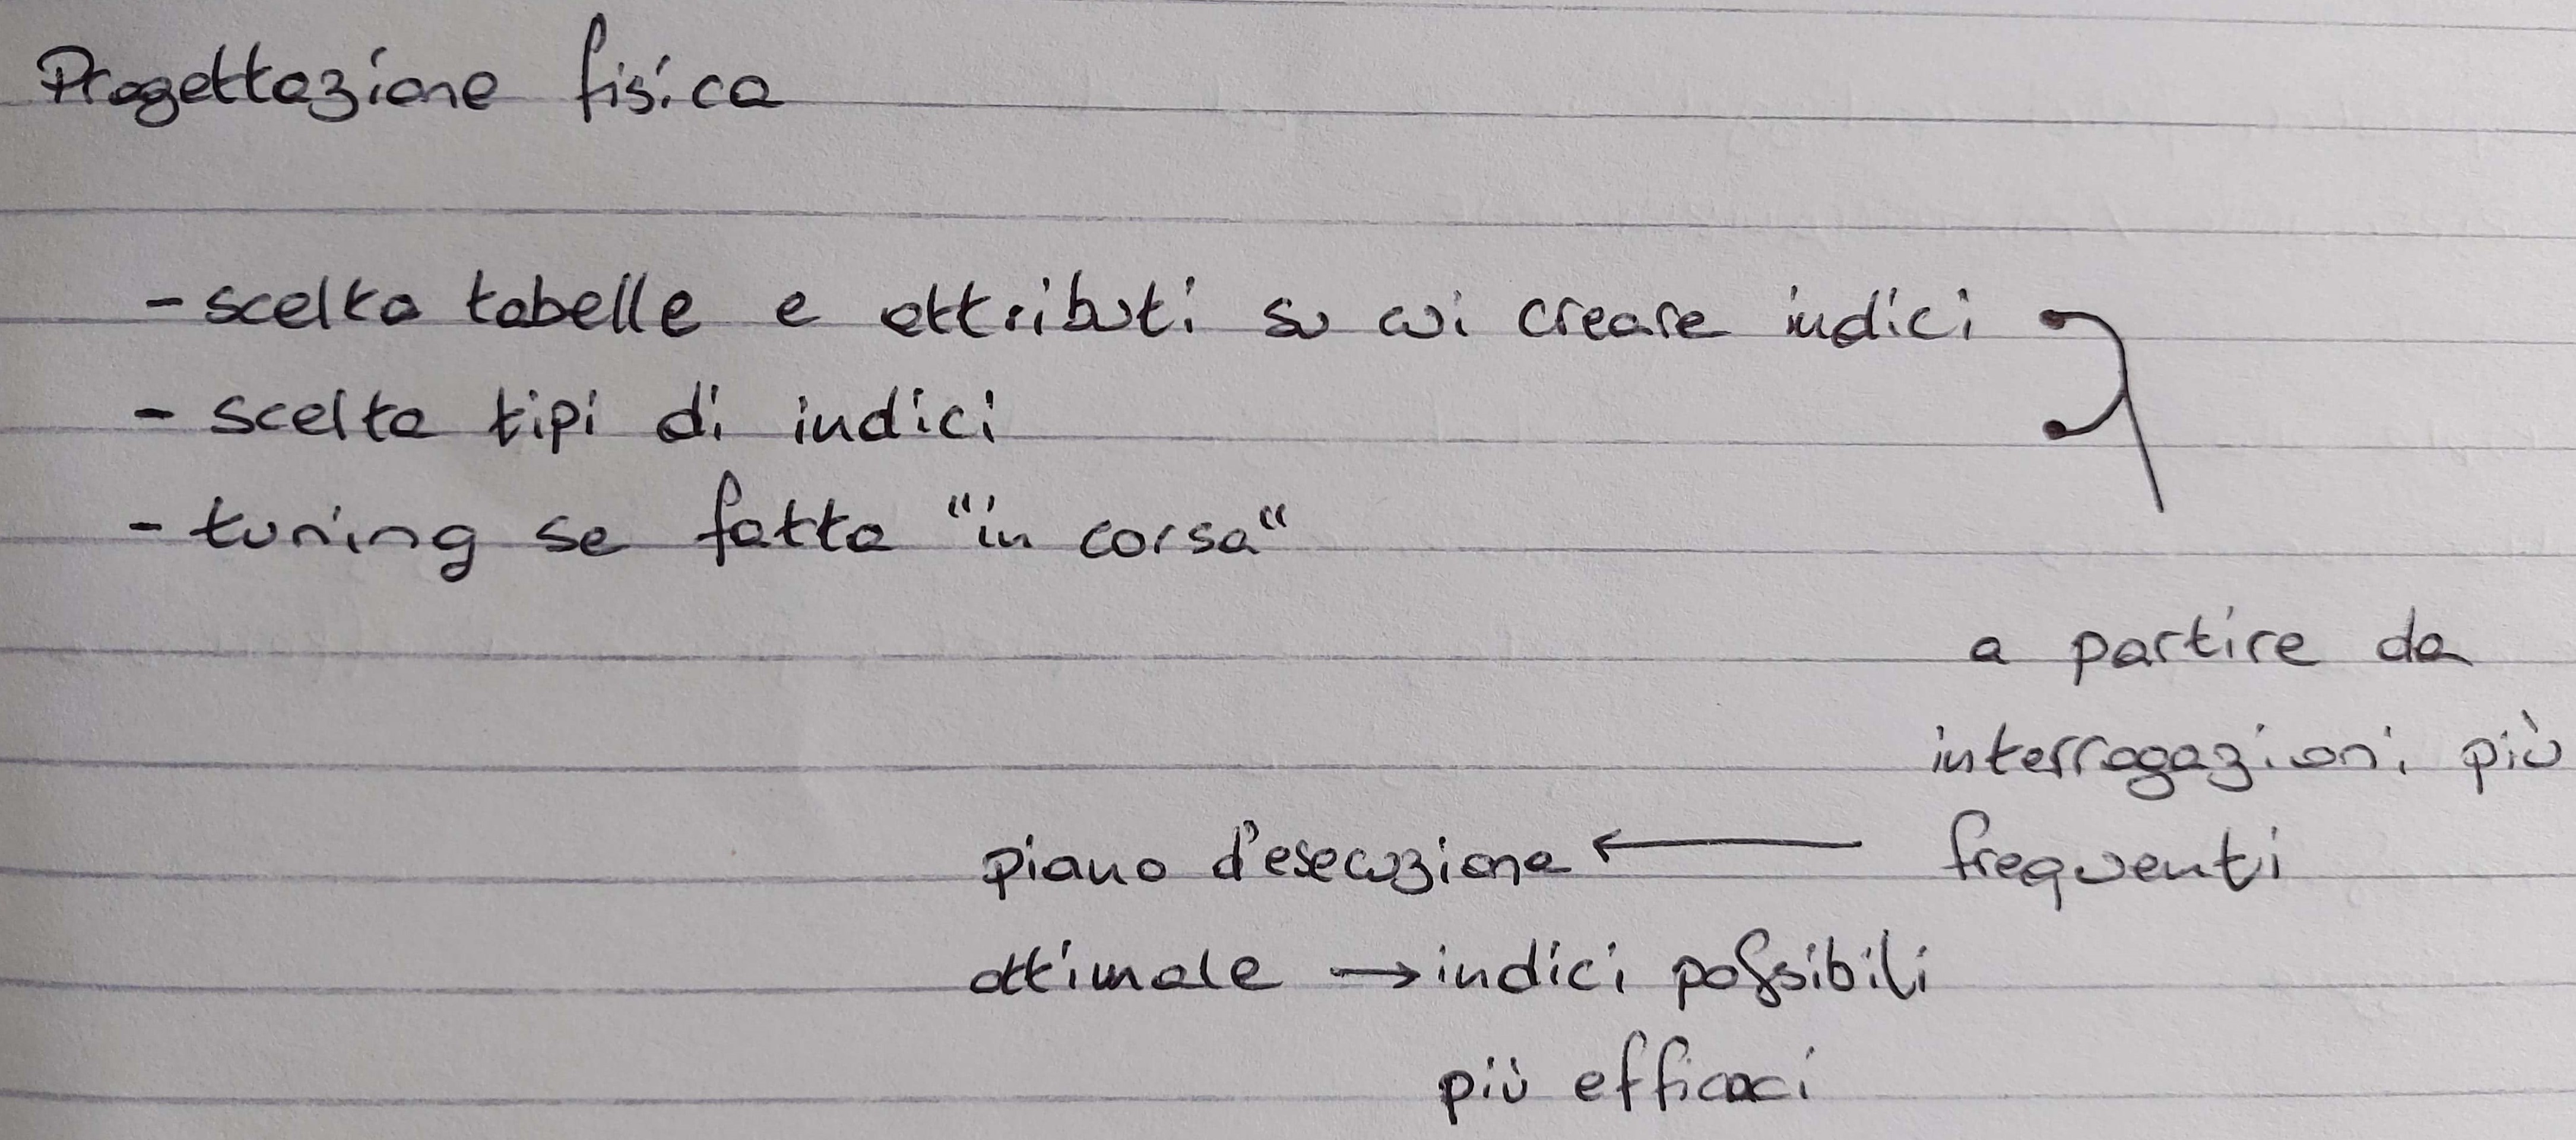 Progettazione fisica
- scelta tabelle e attributi su cui creare indici
- scelta tipi di indici
- tuning se fatta "in corsa"
a partire da
interrogazioni più
piano d'esecuzione ← frequenti
ottimale → indici possibili
più efficaci